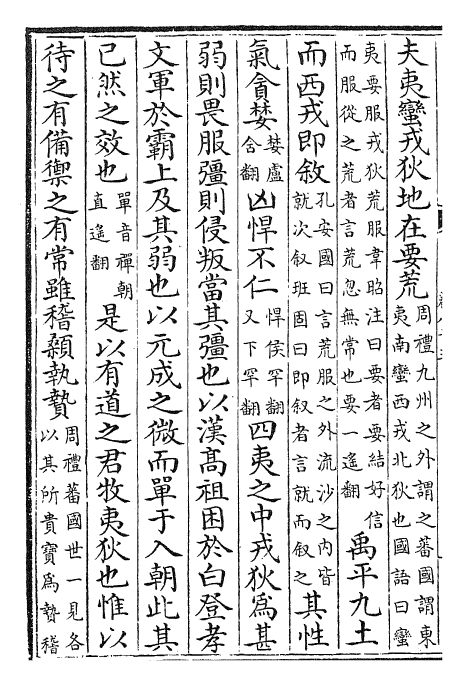 夫夷蠻戎狄地在要荒周禮九州之外謂之蕃國謂東夷南蠻西戎北狄也國語曰蠻
夷要服戎狄荒服韋昭注曰要者要結好信而服從之荒者言荒忽無常也要一遙翻禹平九土
而西戎即敘孔安國曰言荒服之外流沙之内皆就次叙班固曰即叙者言就而叙之其性
氣貪婪婪盧含翻凶悍不仁悍侯罕翻又下罕翻四夷之中戎狄爲甚
弱則畏服彊則侵叛當其彊也以漢髙祖困於白登孝
文軍於霸上及其弱也以元成之微而單于入朝此其
已然之效也單音禪朝直遙翻是以有道之君牧夷狄也惟以
待之有備禦之有常雖稽顙執贄周禮蕃國世一見各以其所貴寶爲贄稽